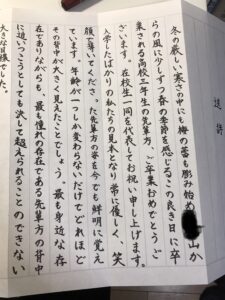 送詩
冬の厳しい寒さの中にも梅の蕾も膨み始め 山か
らの風に少しずつ春の季節を感じるこの良き日に卒
業される高校三年生の先輩方、ご卒業おめでとうご
ざいます。在校生一同を代表してお祝い申し上げます。
入学したばかりの私たちの見本となり常に優しく、笑
顔で導いてくださった先輩方の姿を今でも鮮明に覚え
ています。年齢が一つしか変わらないだけでどれほど
その背中が大きく見えたことでしょう。最も身近な存
在でありながらも、最も憧れの存在である先輩方の背中
に追いつこうとしても決して超えられることのできない
大きな目標でした。